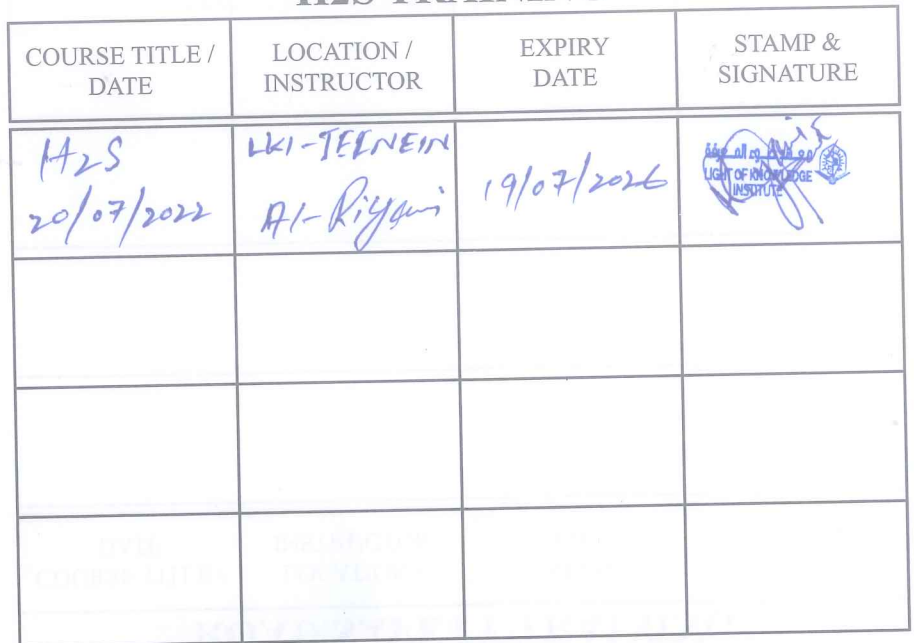 H2S TRAINING
COURSE TITLE / DATE
LOCATION / INSTRUCTOR
EXPIRY DATE
STAMP & SIGNATURE
H2S
20/07/2022
LKI-
Al-Riyami
19/07/2026
LIGHT OF KNOWLEDGE
INSTITUTE